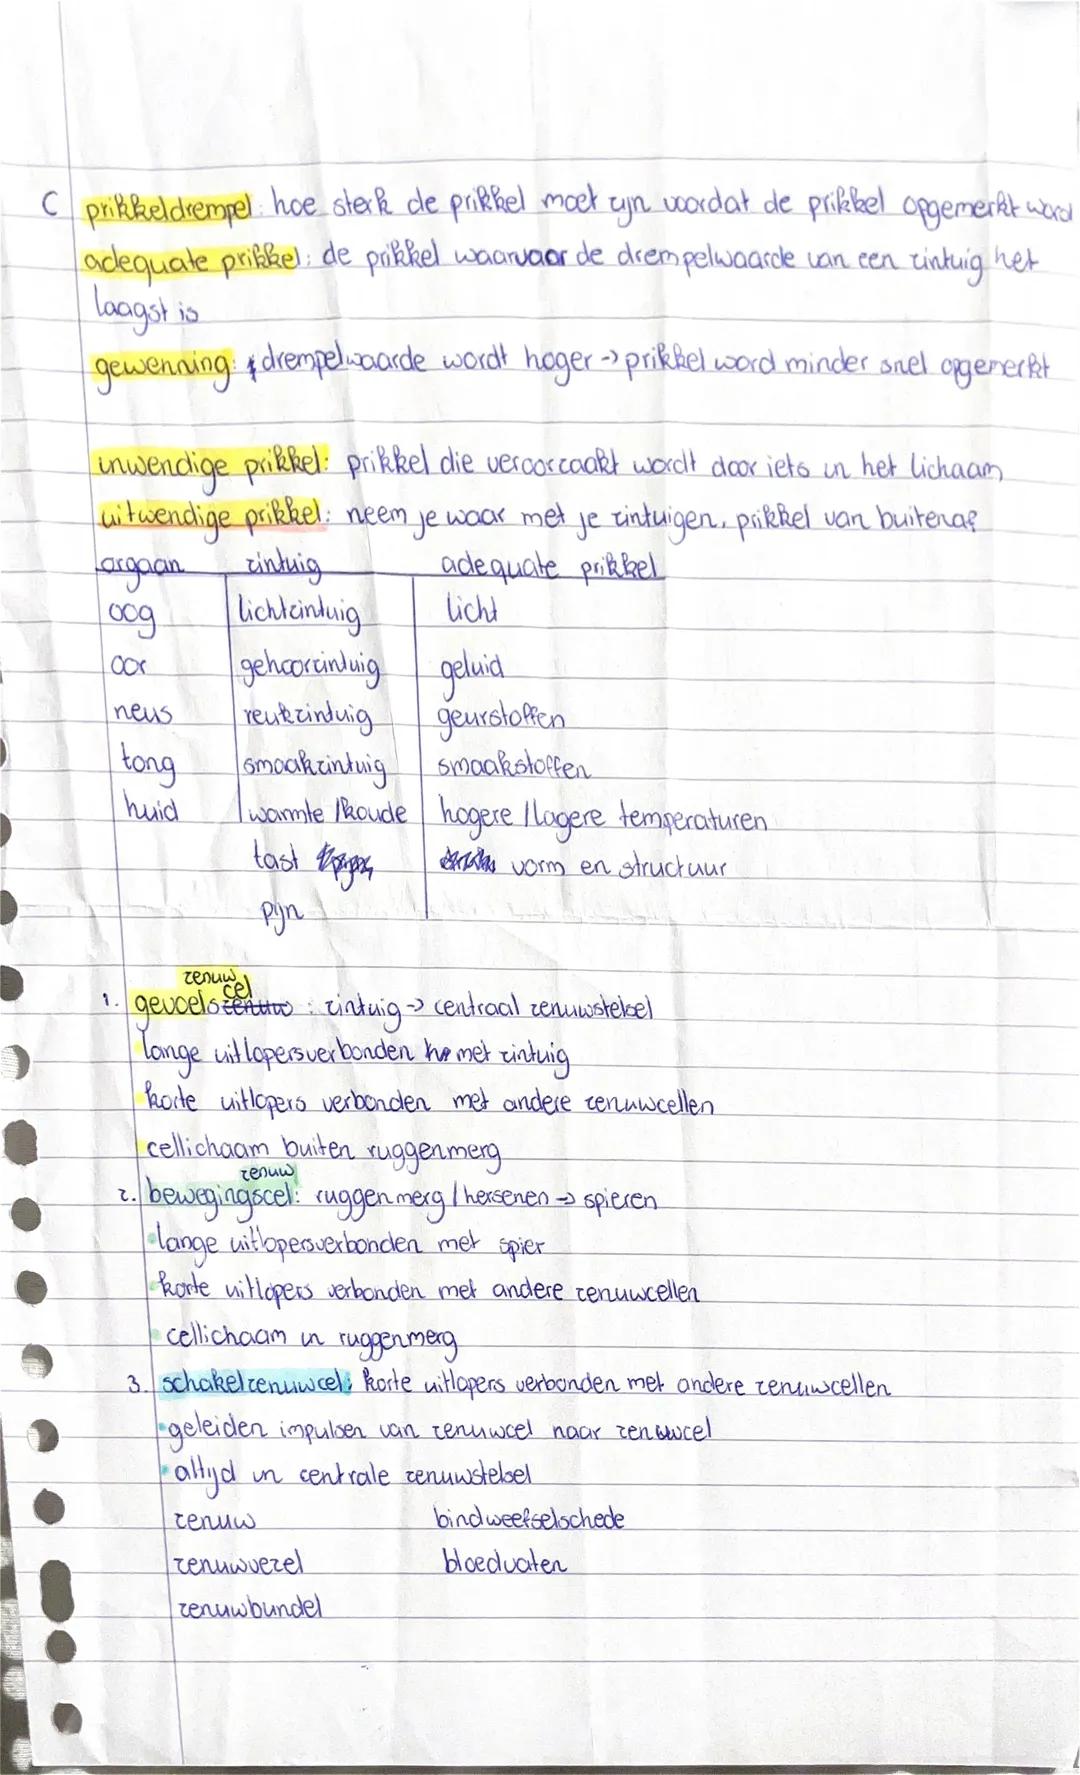 C prikkeldrempel: hoe sterk de prikkel moet zijn voordat de prikkel opgemerkt word
adequate prikkel: de prikkel waarvaar de drempelwaarde van een zintuig het
laagst is
gewenning: drempelwaarde wordt hoger -> prikkel word minder snel opgemerkt
inwendige prikkel: prikkel die veroorzaakt wordt door iets in het lichaam
uitwendige prikkel: neem je waar met je zintuigen, prikkel van buitenaf
orgaan zintuig adequate prikkel
oog lichtzintuig licht
oor gehoorzintuig geluid
neus reukzintuig geurstoffen
tong smaakzintuig smaakstoffen
huid warmte/koude hogere/lagere temperaturen
tast vorm en structuur
pijn
zenuw
cel
1. gevoelszenuw: zintuig -> centraal zenuwstelsel
lange uitlopers verbonden met zintuig
korte uitlopers verbonden met andere zenuwcellen
cellichaam buiten ruggenmerg
zenuw
2. bewegingscel: ruggenmerg/hersenen -> spieren
lange uitlopers verbonden met spier
korte uitlopers verbonden met andere zenuwcellen
cellichaam in ruggenmerg
3. schakelzenuwcel: korte uitlopers verbonden met andere zenuwcellen
geleiden impulsen van zenuwcel naar zenuwcel
altijd in centrale zenuwstelsel
zenuw bindweefselschede
zenuwvezel bloedvaten
zenuwbundel